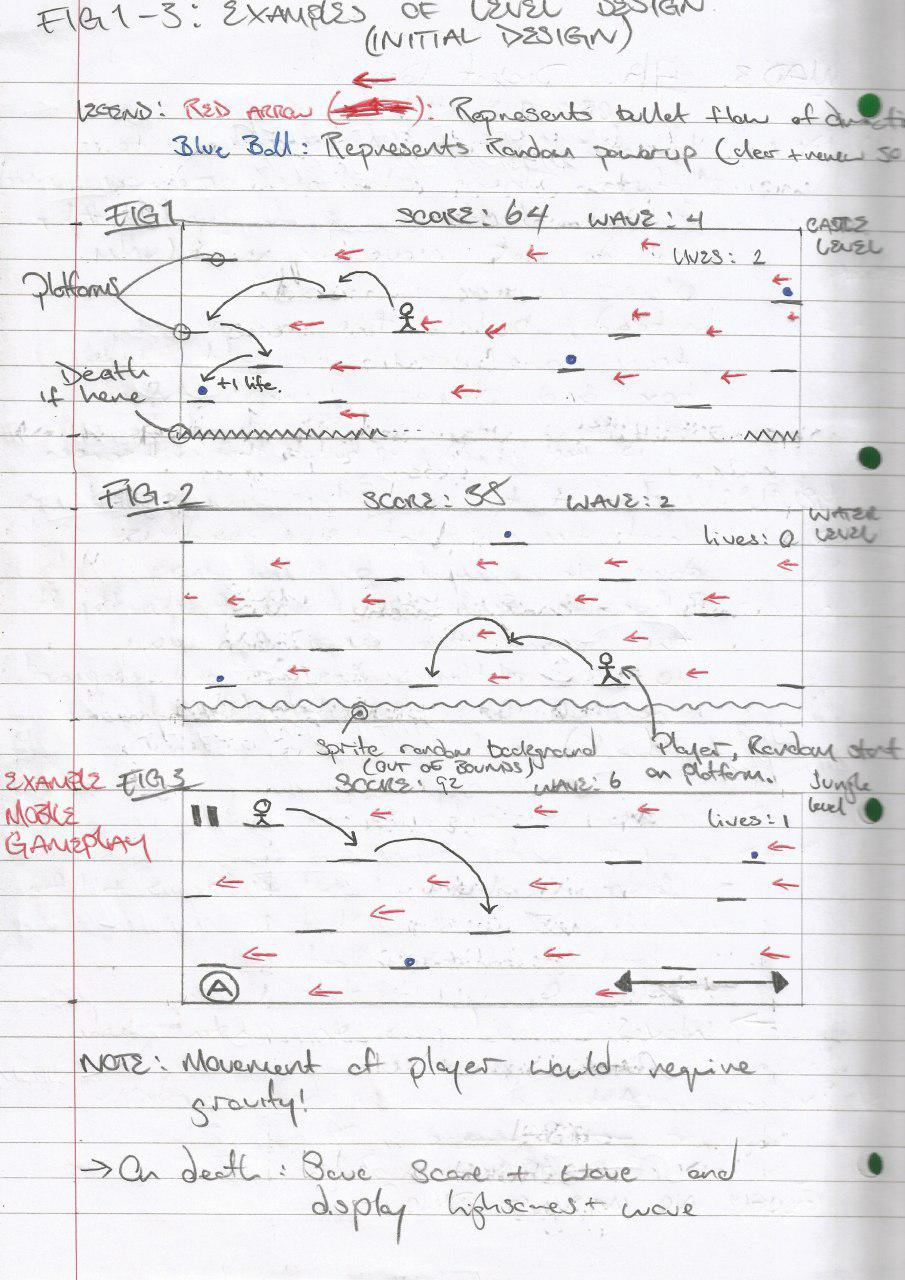 FIG 1-3: EXAMPLES OF LEVEL DESIGN
(INITIAL DESIGN)
LEGEND: RED ARROW ( ): Represents bullet flow of
Blue Ball: Represents Random powerup (clear +
FIG 1 SCORE: 64 WAVE: 4 CASTLE
LEVEL
LIVES: 2
Platforms
Death
if here
+1 life.
FIG. 2 SCORE: 38 WAVE: 2 WATER
LEVEL
lives: 0
Sprite random background
(OUT OF BOUNDS)
Player, Random start
on platform.
EXAMPLE
MOBILE
GAMEPLAY
FIG 3 SCORE: 92 WAVE: 6 Jungle
level
lives: 1
A
NOTE: Movement of player would require
gravity!
→ On death: Save Score + wave and
display highscores + wave